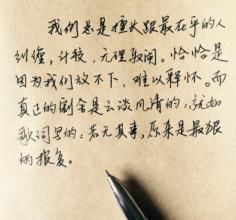 我们总是擅长跟最在乎的人
纠缠,计较,无理取闹。恰恰是
因为我们放不下,难以释怀。而
真正的割舍是云淡风清的,就如
歌词里的:若无其事,原来是最狠
的报复。